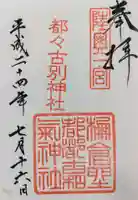 奉拝
陸奥一宮
都々古別神社
平成二十四年七月十六日
氣神社